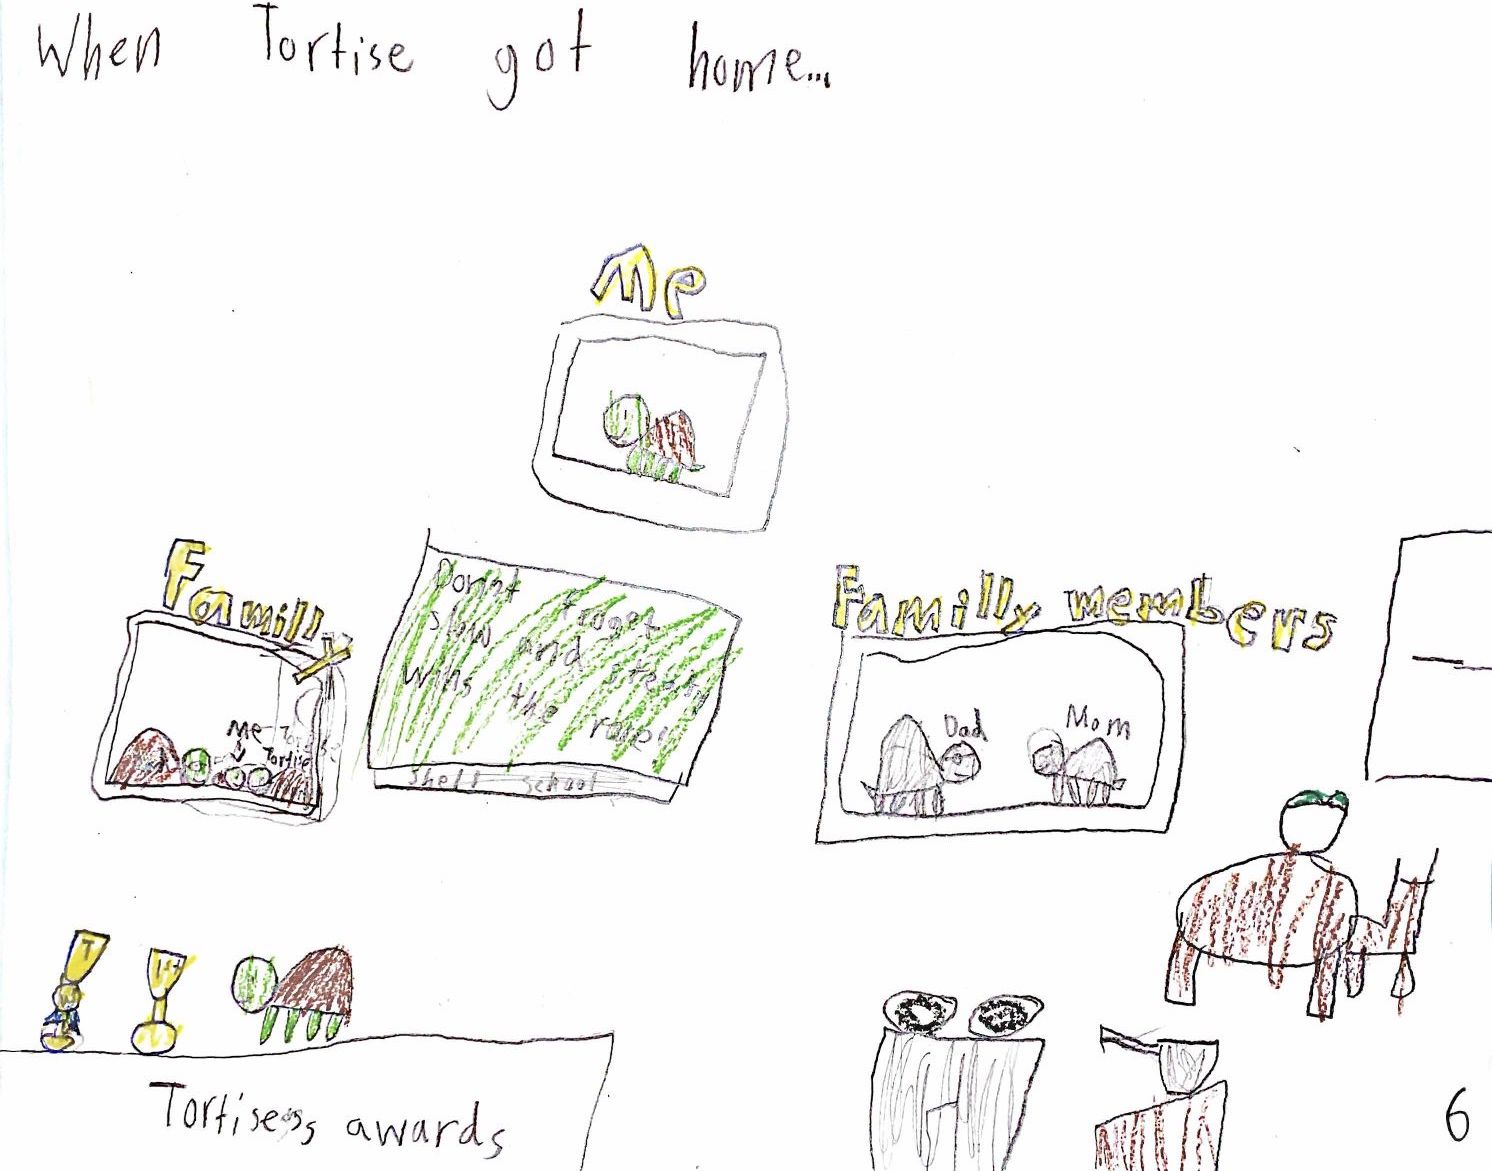 When Tortise got home...
Me
Family
Me
Tortise
Dornt froget
slow and steady
wins the race"
Shell School
Familly members
Dad
Mom
T
1st
Tortises awards
6